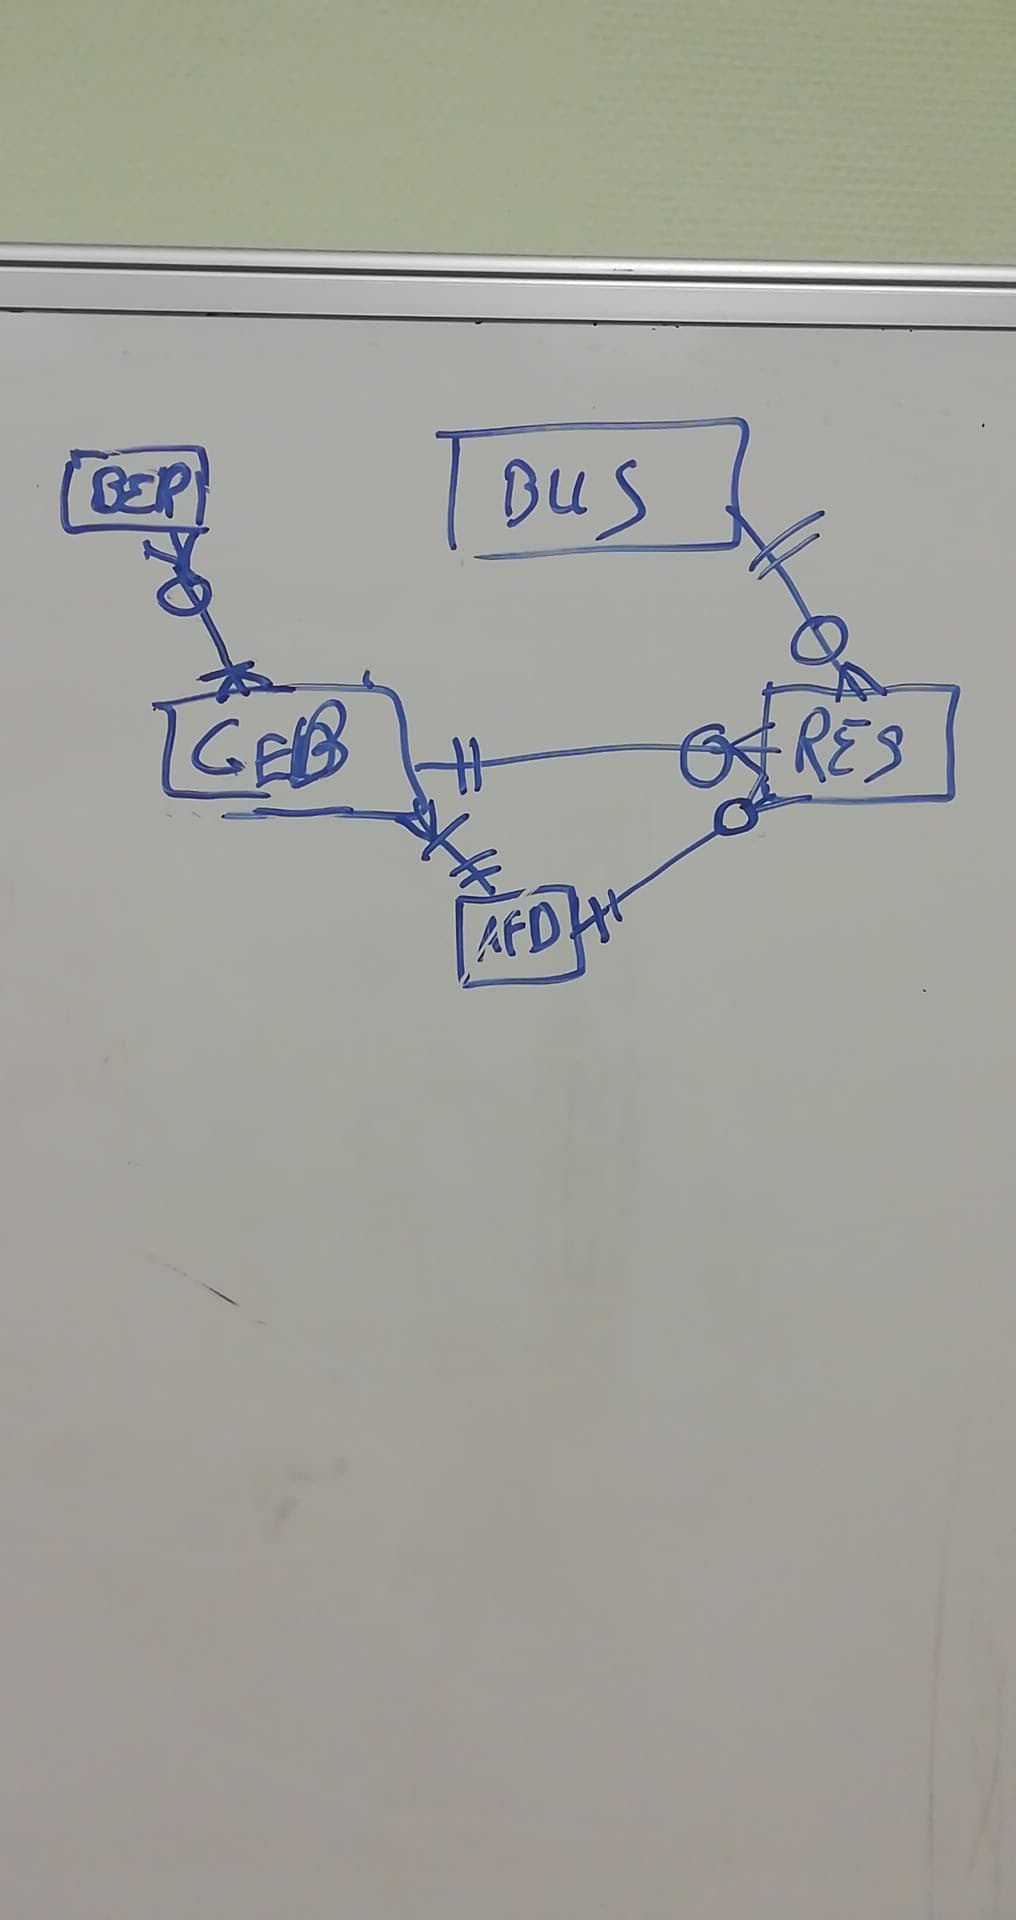 BEP
BUS
GEB
RES
AFD